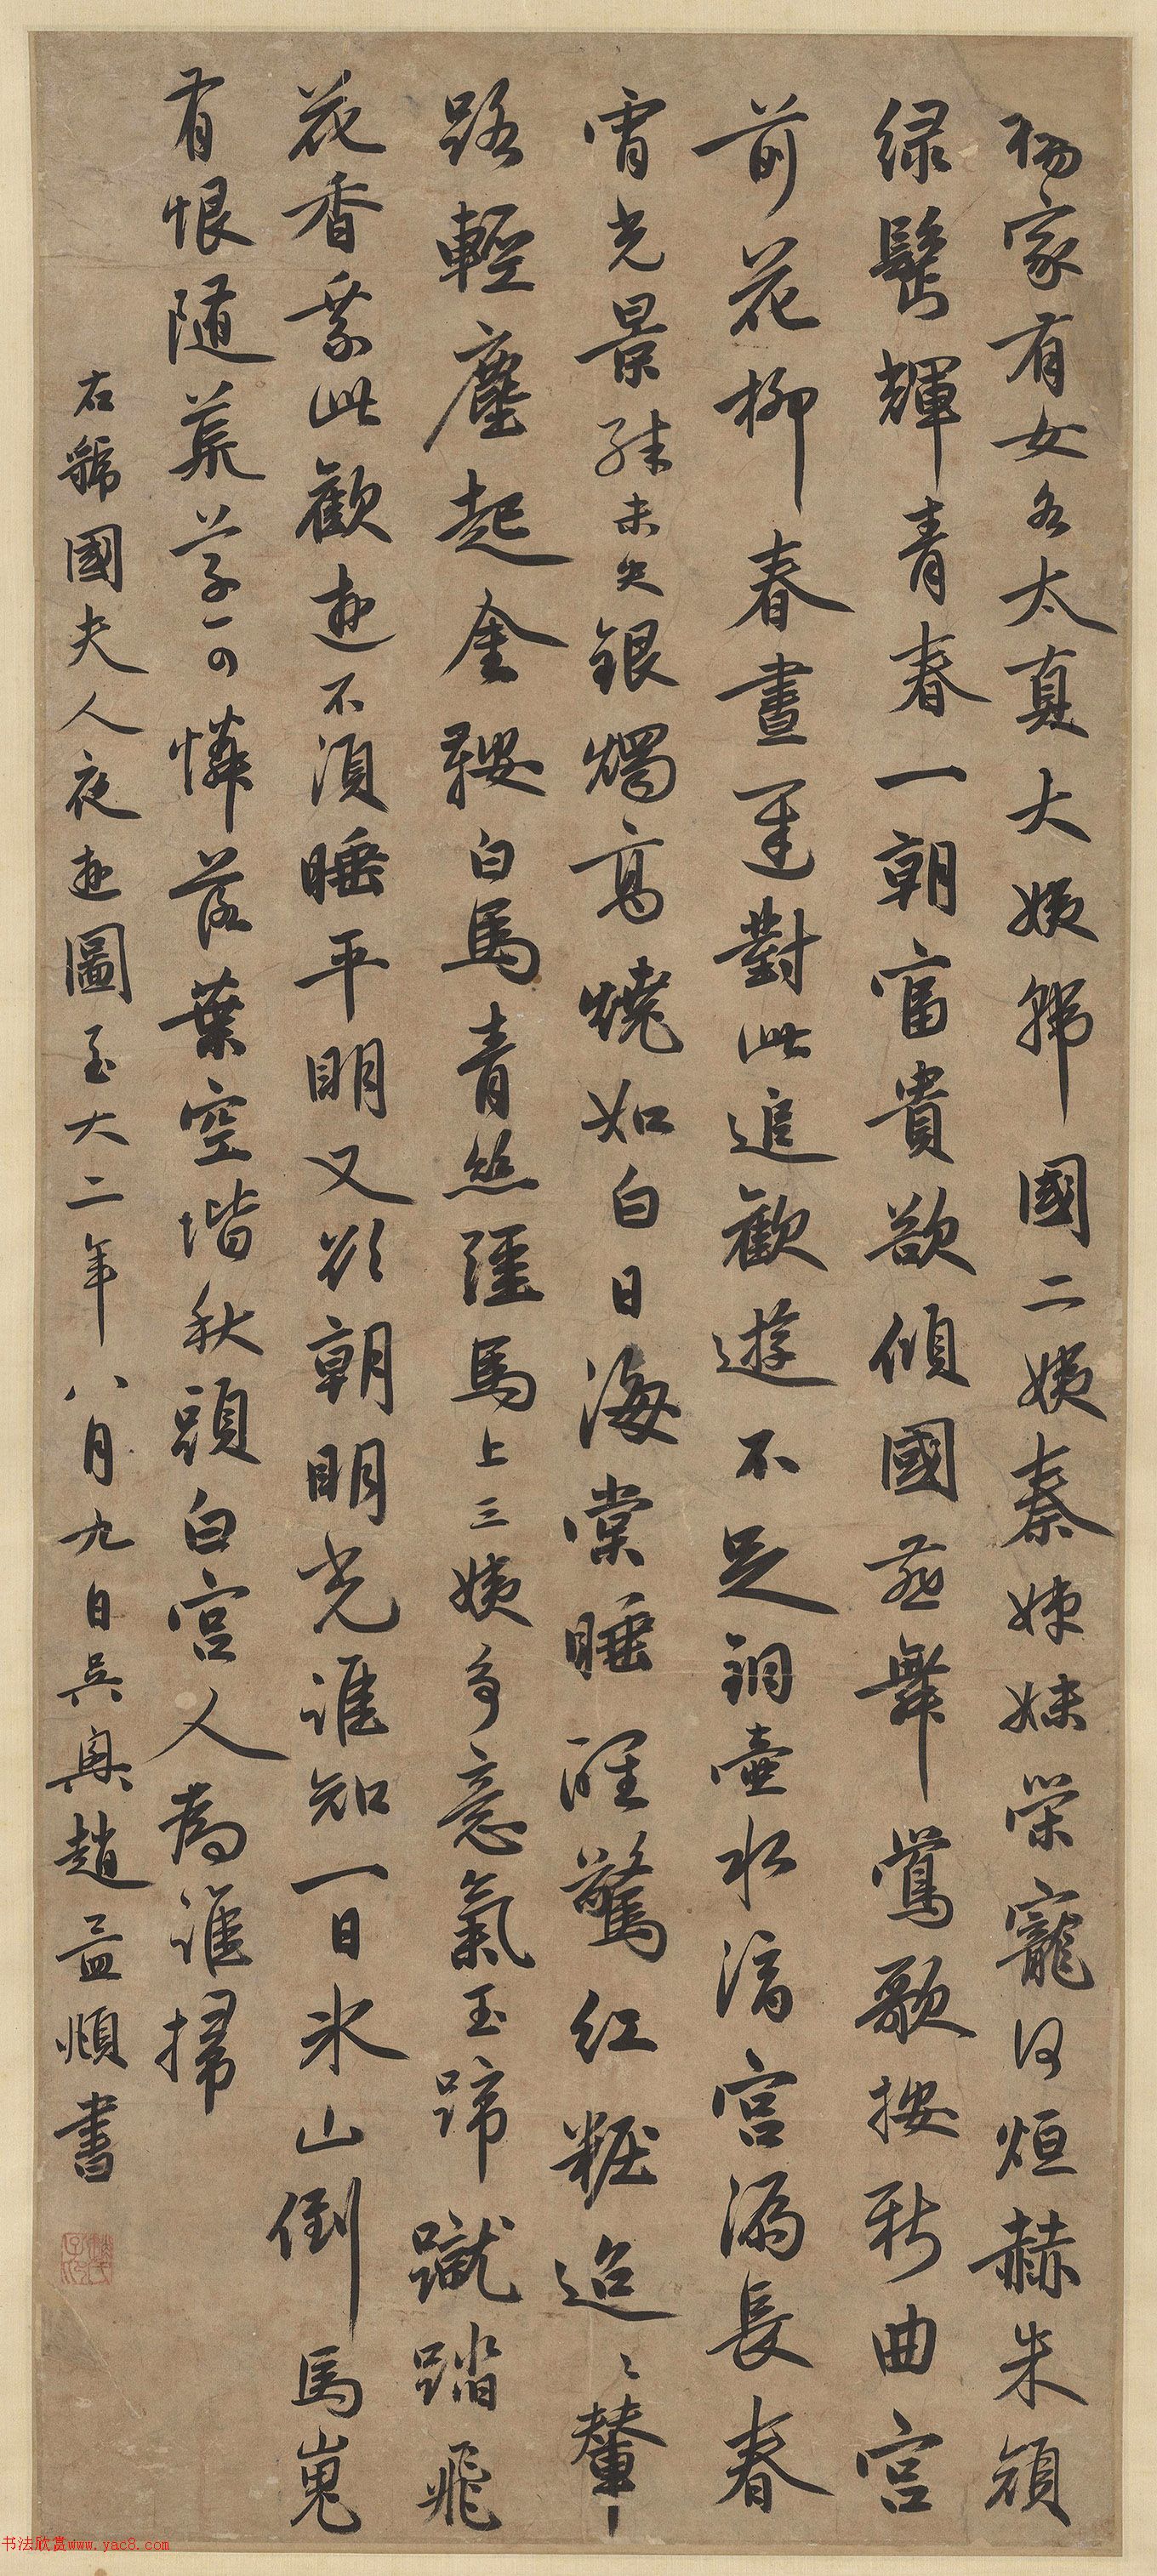 楊家有女名太真大姨號國二姨秦姊妹榮寵何烜赫朱顏
綠鬢輝青春一朝富貴欲傾國燕舞鶯歌按新曲宮
前花柳春晝遲對此追歡遊不足銅壺水滴宮漏長春
宵光景殊未央銀燭高燒如白日海棠睡醒驚紅粧迢〻輦
路輕塵起金鞍白馬青絲韁馬上三姨多意氣玉蹄蹴踏飛
花香乘此歡遊不須睡平明又欲朝明光誰知一日冰山倒馬嵬
有恨隨荒草可憐落葉空堦秋頭白宮人為誰掃
右號國夫人夜遊圖至大二年八月九日吳興趙孟頫書
书法欣赏www.yac8.com